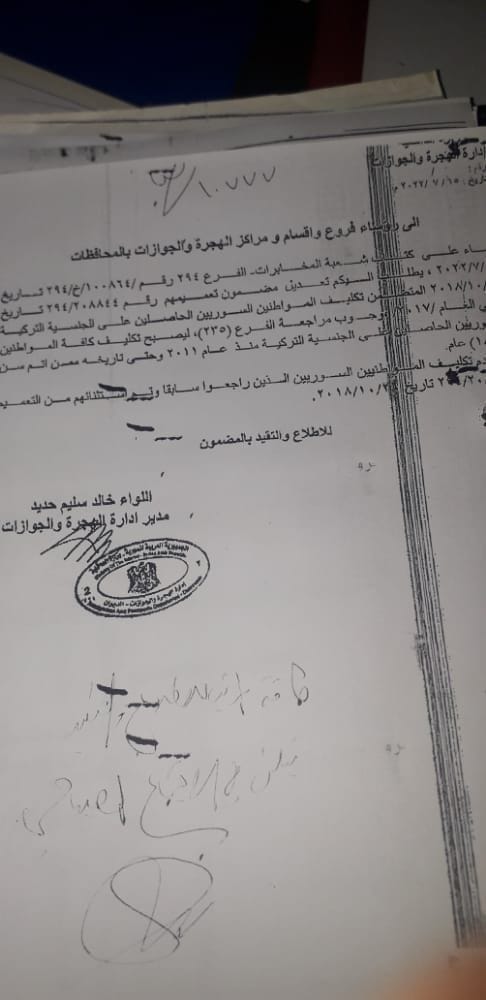 إدارة الهجرة والجوازات
١٠٧٧٧
تاريخ: ٢٠٢٢/٧/١٥ م
الى رؤساء فروع واقسام و مراكز الهجرة والجوازات بالمحافظات
اء على كتاب شعبة المخابرات- الفرع ٢٩٤ رقم /١٠٠٨٦٤/خ/٢٩٤ تاريخ
٢٠٢٢/٧/ ، يطلب اليكم تعديل مضمون تعميمهم رقم ٢٩٤/٢٠٨٨٤٤ تاريخ
٢٠١٨/١٠/ المتضمن تكليف المواطنين السوريين الحاصلين على الجنسية التركية
في العام /٢٠١٧ وجوب مراجعة الفرع (٢٣٥)، ليصبح تكليف كافة المواطنين
وريين الحاصلين على الجنسية التركية منذ عام ٢٠١١ وحتى تاريخه ممن اتم سن
عام.
دم تكليف المواطنيين السوريين الذين راجعوا سابقا وتم استثنائهم من التعميم
تاريخ ٢٠١٨/١٠/
للاطلاع والتقيد بالمضمون
اللواء خالد سليم حديد
مدير ادارة الهجرة والجوازات
الجمهورية العربية السورية - وزارة الداخلية
إدارة الهجرة والجوازات - الديوان
كافة